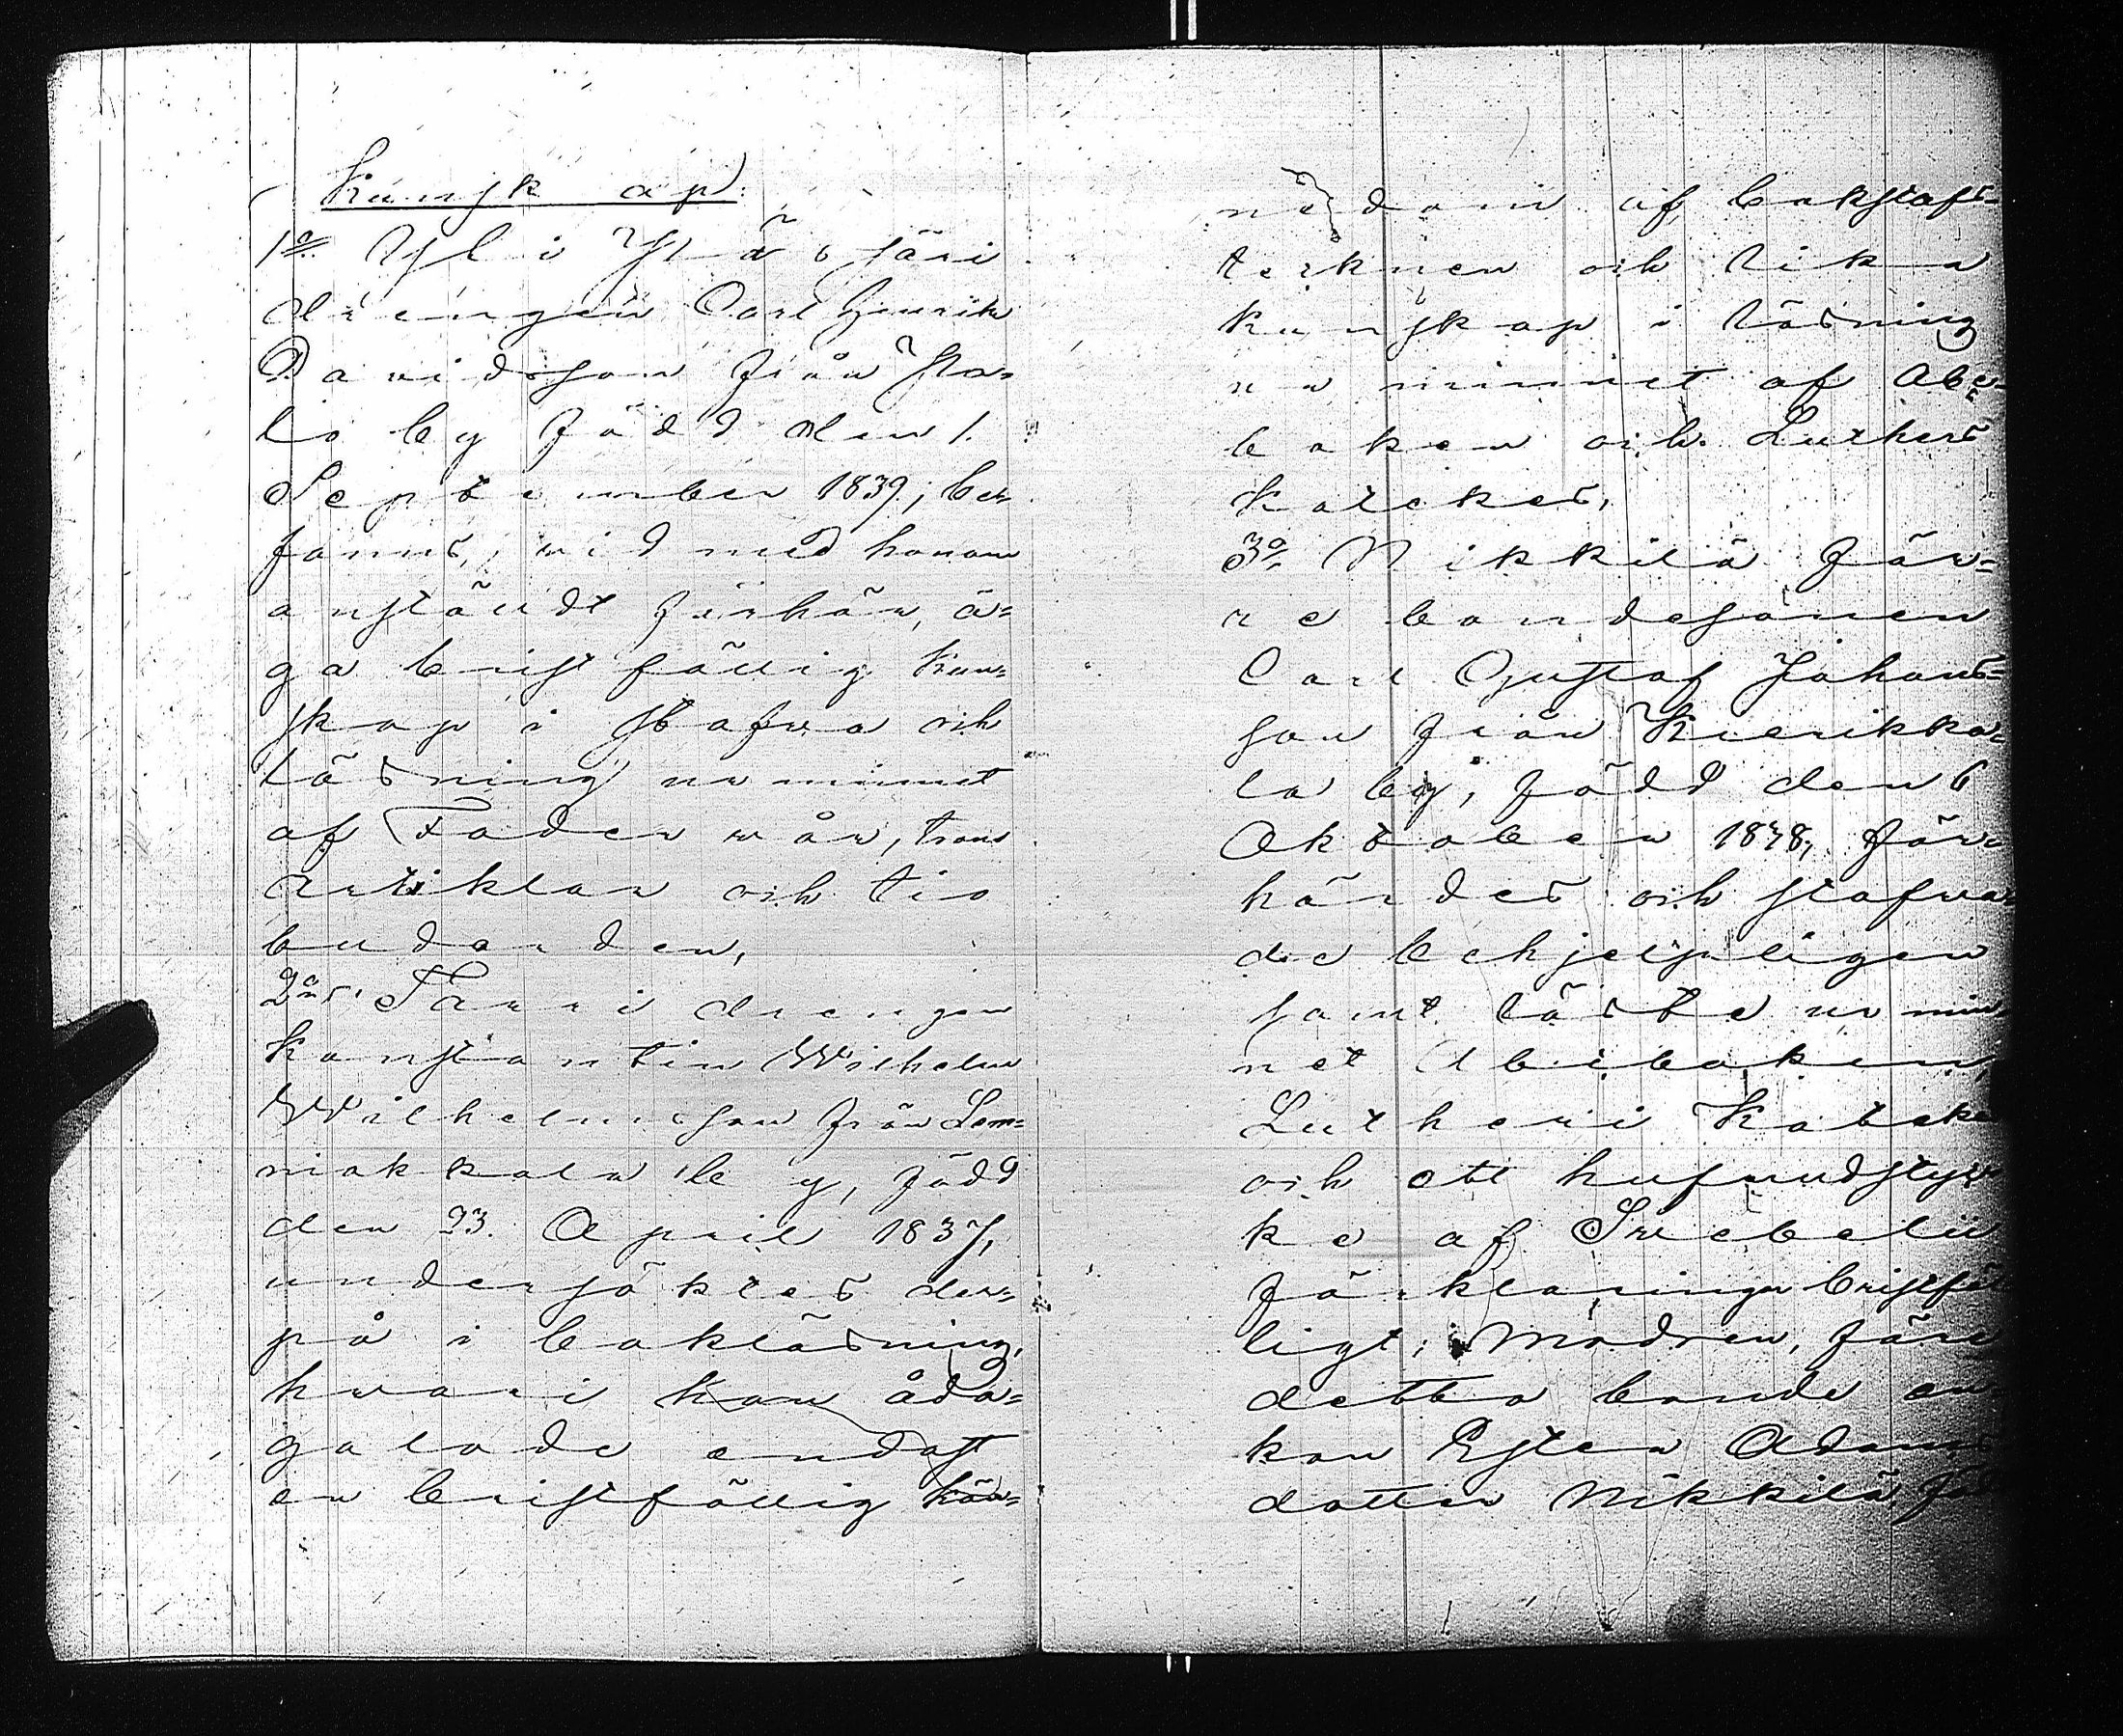 Kunskap:
1o Yli Ylösjäri
drengen Carl Henrik
Davidsson från Sta-
lo by född den 1.
September 1839; be-
fanns, vid med honom
anstäldt förhör, ä-
ga bristfällig kun-
skap i stafva och
läsning ur minnet
af Fader vår, trons
artiklar och tio
budorden,
2o Tarri drengen
Konstantin Wilhelm
Wilhelmsson från Lem-
miakkala by, född
den 23. April 1837,
undersöktes der-
på i bokläsning,
hvari han åda-
galade endast
en bristfällig kän-
nedom af bokstafs-
tecknen och lika
kunskap i läsning
ur minnet af Abe-
boken och Luthers
Kateches,
3o Nikkilä för-
re bondesonen
Carl Gustaf Johans-
son från Kierikka-
la by, född den 6
Oktober 1838, för-
hördes och stafva-
de behjelpligen
samt läste ur min-
net Abeboken,
Lutheri Kateke
och ett hufvudstyc-
ke af Svebelii
förklaringar bristfäl
ligt; Modren, före
detta bonde en-
kan Ester Adams
dotter Nikkilä, föd